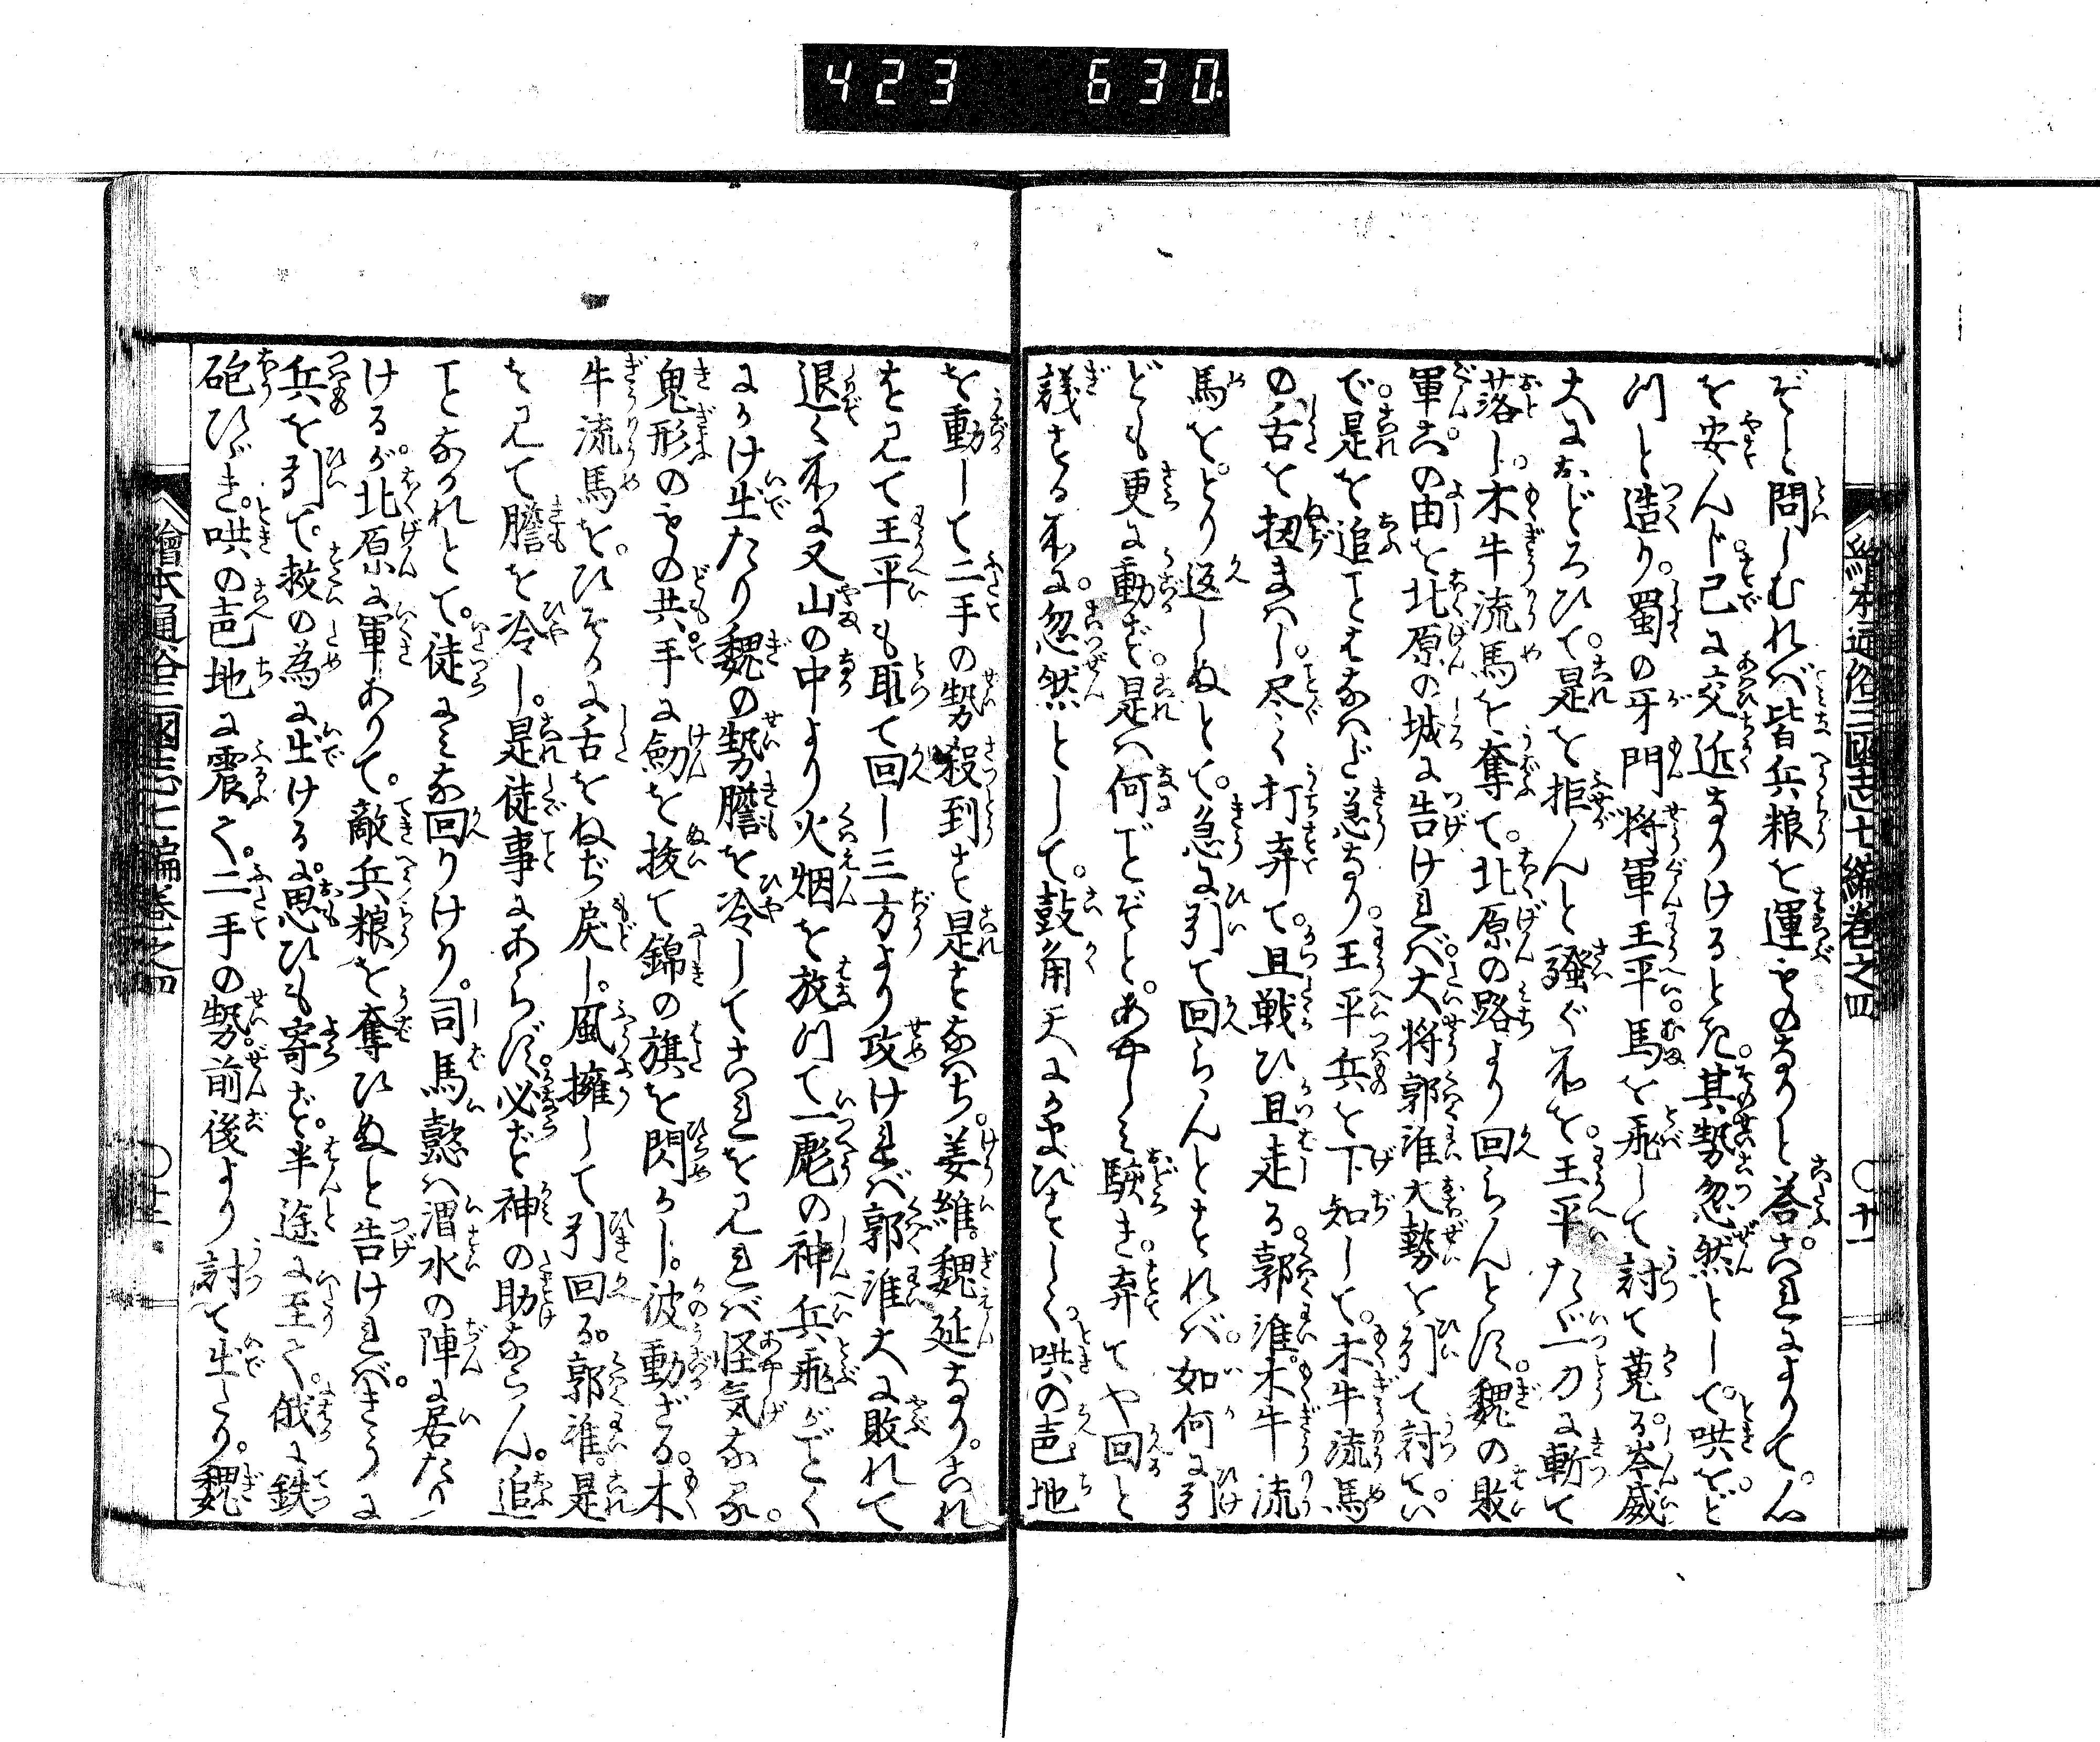 423 630
繪本通俗三國志七編巻之四 〇十一
ぞと問しむれバ皆兵粮を運ものなりと答これによりて。心
を安んじ已に交近なりけるとき。其勢忽然として。哄をど
つと造り。蜀の牙門将軍王平馬を飛して討て蒐る。岑威
大におどろひて。是を拒んと騒ぐ所を。王平たゞ一刀に斬て
落し。木牛流馬を奪て。北原の路より回らんとす。魏の敗
軍。この由を北原の城に告けれバ。大将郭淮大勢を引て討てい
で。是を追ことはなハだ急なり。王平兵を下知して。木牛流馬
の舌を扭まハし。尽く打弃て。且戦ひ且走る。郭淮。木牛流
馬をとり返しぬとて。急に引て回らんとすれバ。如何に引
ども更に動ず。是ハ何ことぞと。あやしミ駭き。弃てや回と
議する所に。忽然として。鼓角天にかまびすしく。哄の声地
を動して二手の勢殺到す是すなハち。姜維。魏延なり。これ
を見て王平も取て回し三方より攻けれバ郭淮大に敗れて
退く所に又山の中より火烟を放つて一彪の神兵飛がごとく
にかけ出たり魏の勢膽を冷してこれを見れバ怪気なる。
鬼形のもの共。手に劔を抜て錦の旗を閃かし。彼動ざる。木
牛流馬を。ひそかに舌をねぢ戻し。風擁して引回る。郭淮。是
を見て膽を冷し。是徒事にあらず。必ず神の助ならん。追
ことなかれとて。徒にミな回りけり。司馬懿ハ渭水の陣に居たり
けるが。北原に軍ありて。敵兵粮を奪ひぬと告けれバ。きうに
兵を引て。救の為に出けるに。思ひも寄ず。半途に至て。俄に鉄
砲ひゞき。哄の声地に震て。二手の勢。前後より討て出たり。魏
繪本通俗三國志七編巻之四 〇十二